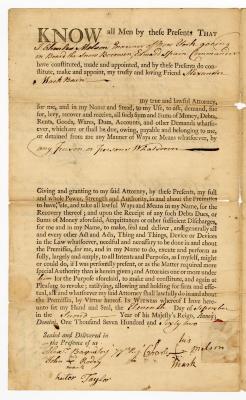 KNOW all Men by these Presents THAT
I Charles
have constituted, made and appointed, and by these Presents do con-
stitute, make and appoint, my trusty and loving Friend Alexander
my true and lawful Attorney,
for me, and in my Name and Stead, to my Use, to ask, demand, sue
for, levy, recover and receive, all such Sum and Sums of Money, Debts,
Rents, Goods, Wares, Dues, Accounts, and other Demands whatso-
ever, which are or shall be due, owing, payable and belonging to me,
or detained from me any Manner of Ways or Means whatsoever, by
any person or persons Whatsoever
Giving and granting to my said Attorney, by these Presents, my full
and whole Power, Strength and Authority, in and about the Premises
to have, use, and take all lawful Ways and Means in my Name, for the
Recovery thereof; and upon the Receipt of any such Debts Dues, or
Sums of Money aforesaid, Acquittances or other sufficient Discharges,
for me and in my Name, to make, seal and deliver, and generally all
and every other Act and Acts, Thing and Things, Device or Devices
in the Law whatsoever, needful and necessary to be done in and about
the Premises, for me, and in my Name to do, execute and perform as
fully, largely and amply, to all Intents and Purposes, as I myself, might
or could do, if I was personally present, or as the Matter required more
Special Authority than is herein given; and Attornies one or more under
him for the Purpose aforesaid, to make and constitute, and again at
Pleasure to revoke; ratifying, allowing and holding for firm and effec-
tual, all and whatsoever my said Attorney shall lawfully do in and about
the Premises, by Virtue hereof. In WITNESS whereof I have here-
unto set my Hand and Seal, the Day of
in the Second Year of his Majesty's Reign, Annoq;
Domini, One Thousand Seven Hundred and Sixty two
Sealed and Delivered in
the Presence of us
his
Charles Molson
mark
John
Taylor